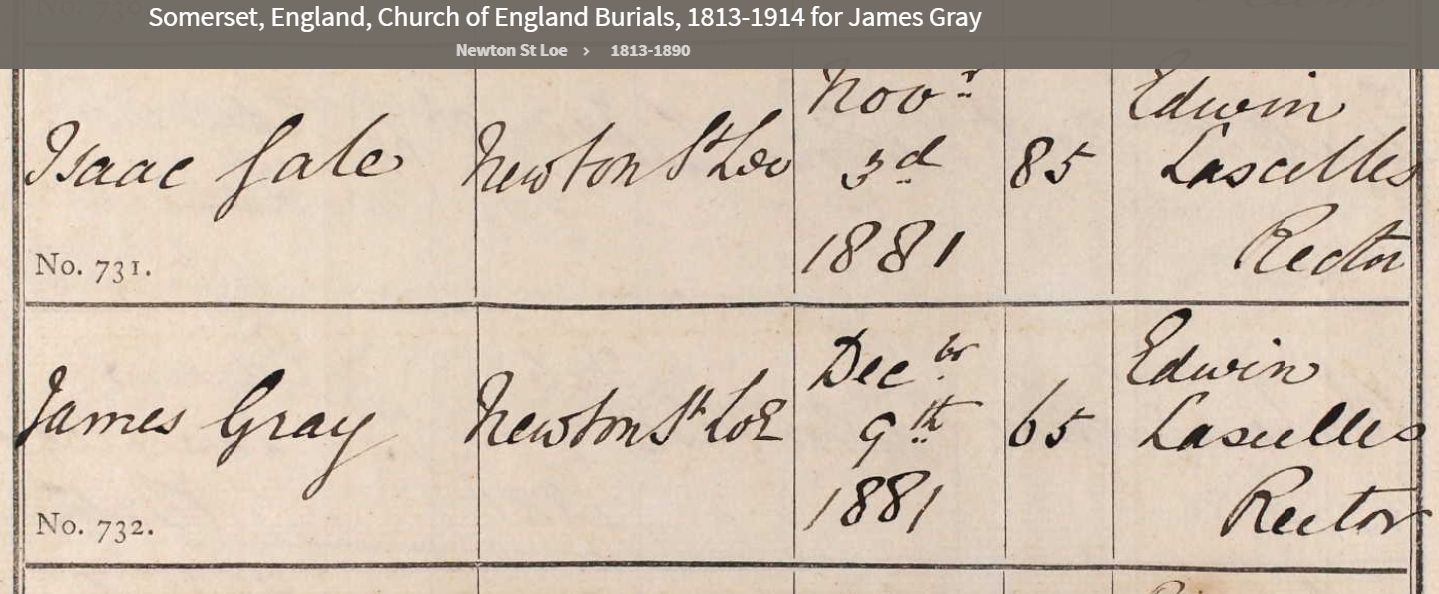 Somerset, England, Church of England Burials, 1813-1914 for James Gray
Newton St Loe › 1813-1890
Isaac Gale
Newton St Loe
Novr
3d
1881
85
Edwin
Lascelles
Rector
No. 731.
James Gray
Newton St Loe
Decbr
9th
1881
65
Edwin
Lascelles
Rector
No. 732.